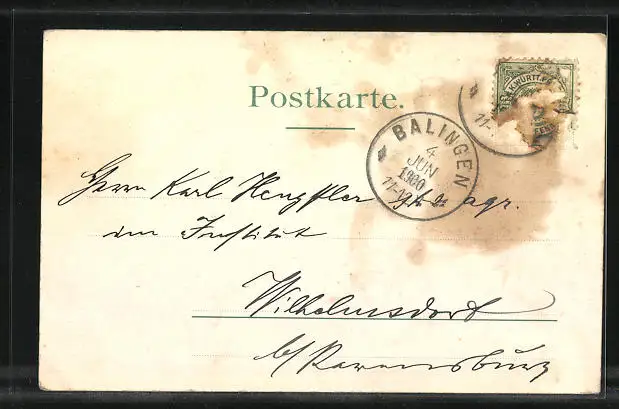 K.WÜRTT.
Postkarte.
BALINGEN
4
JUN
1900
11-12
11-
Herrn Karl Hengstler
im Institut
Wilhelmsdorf
b/Ravensburg